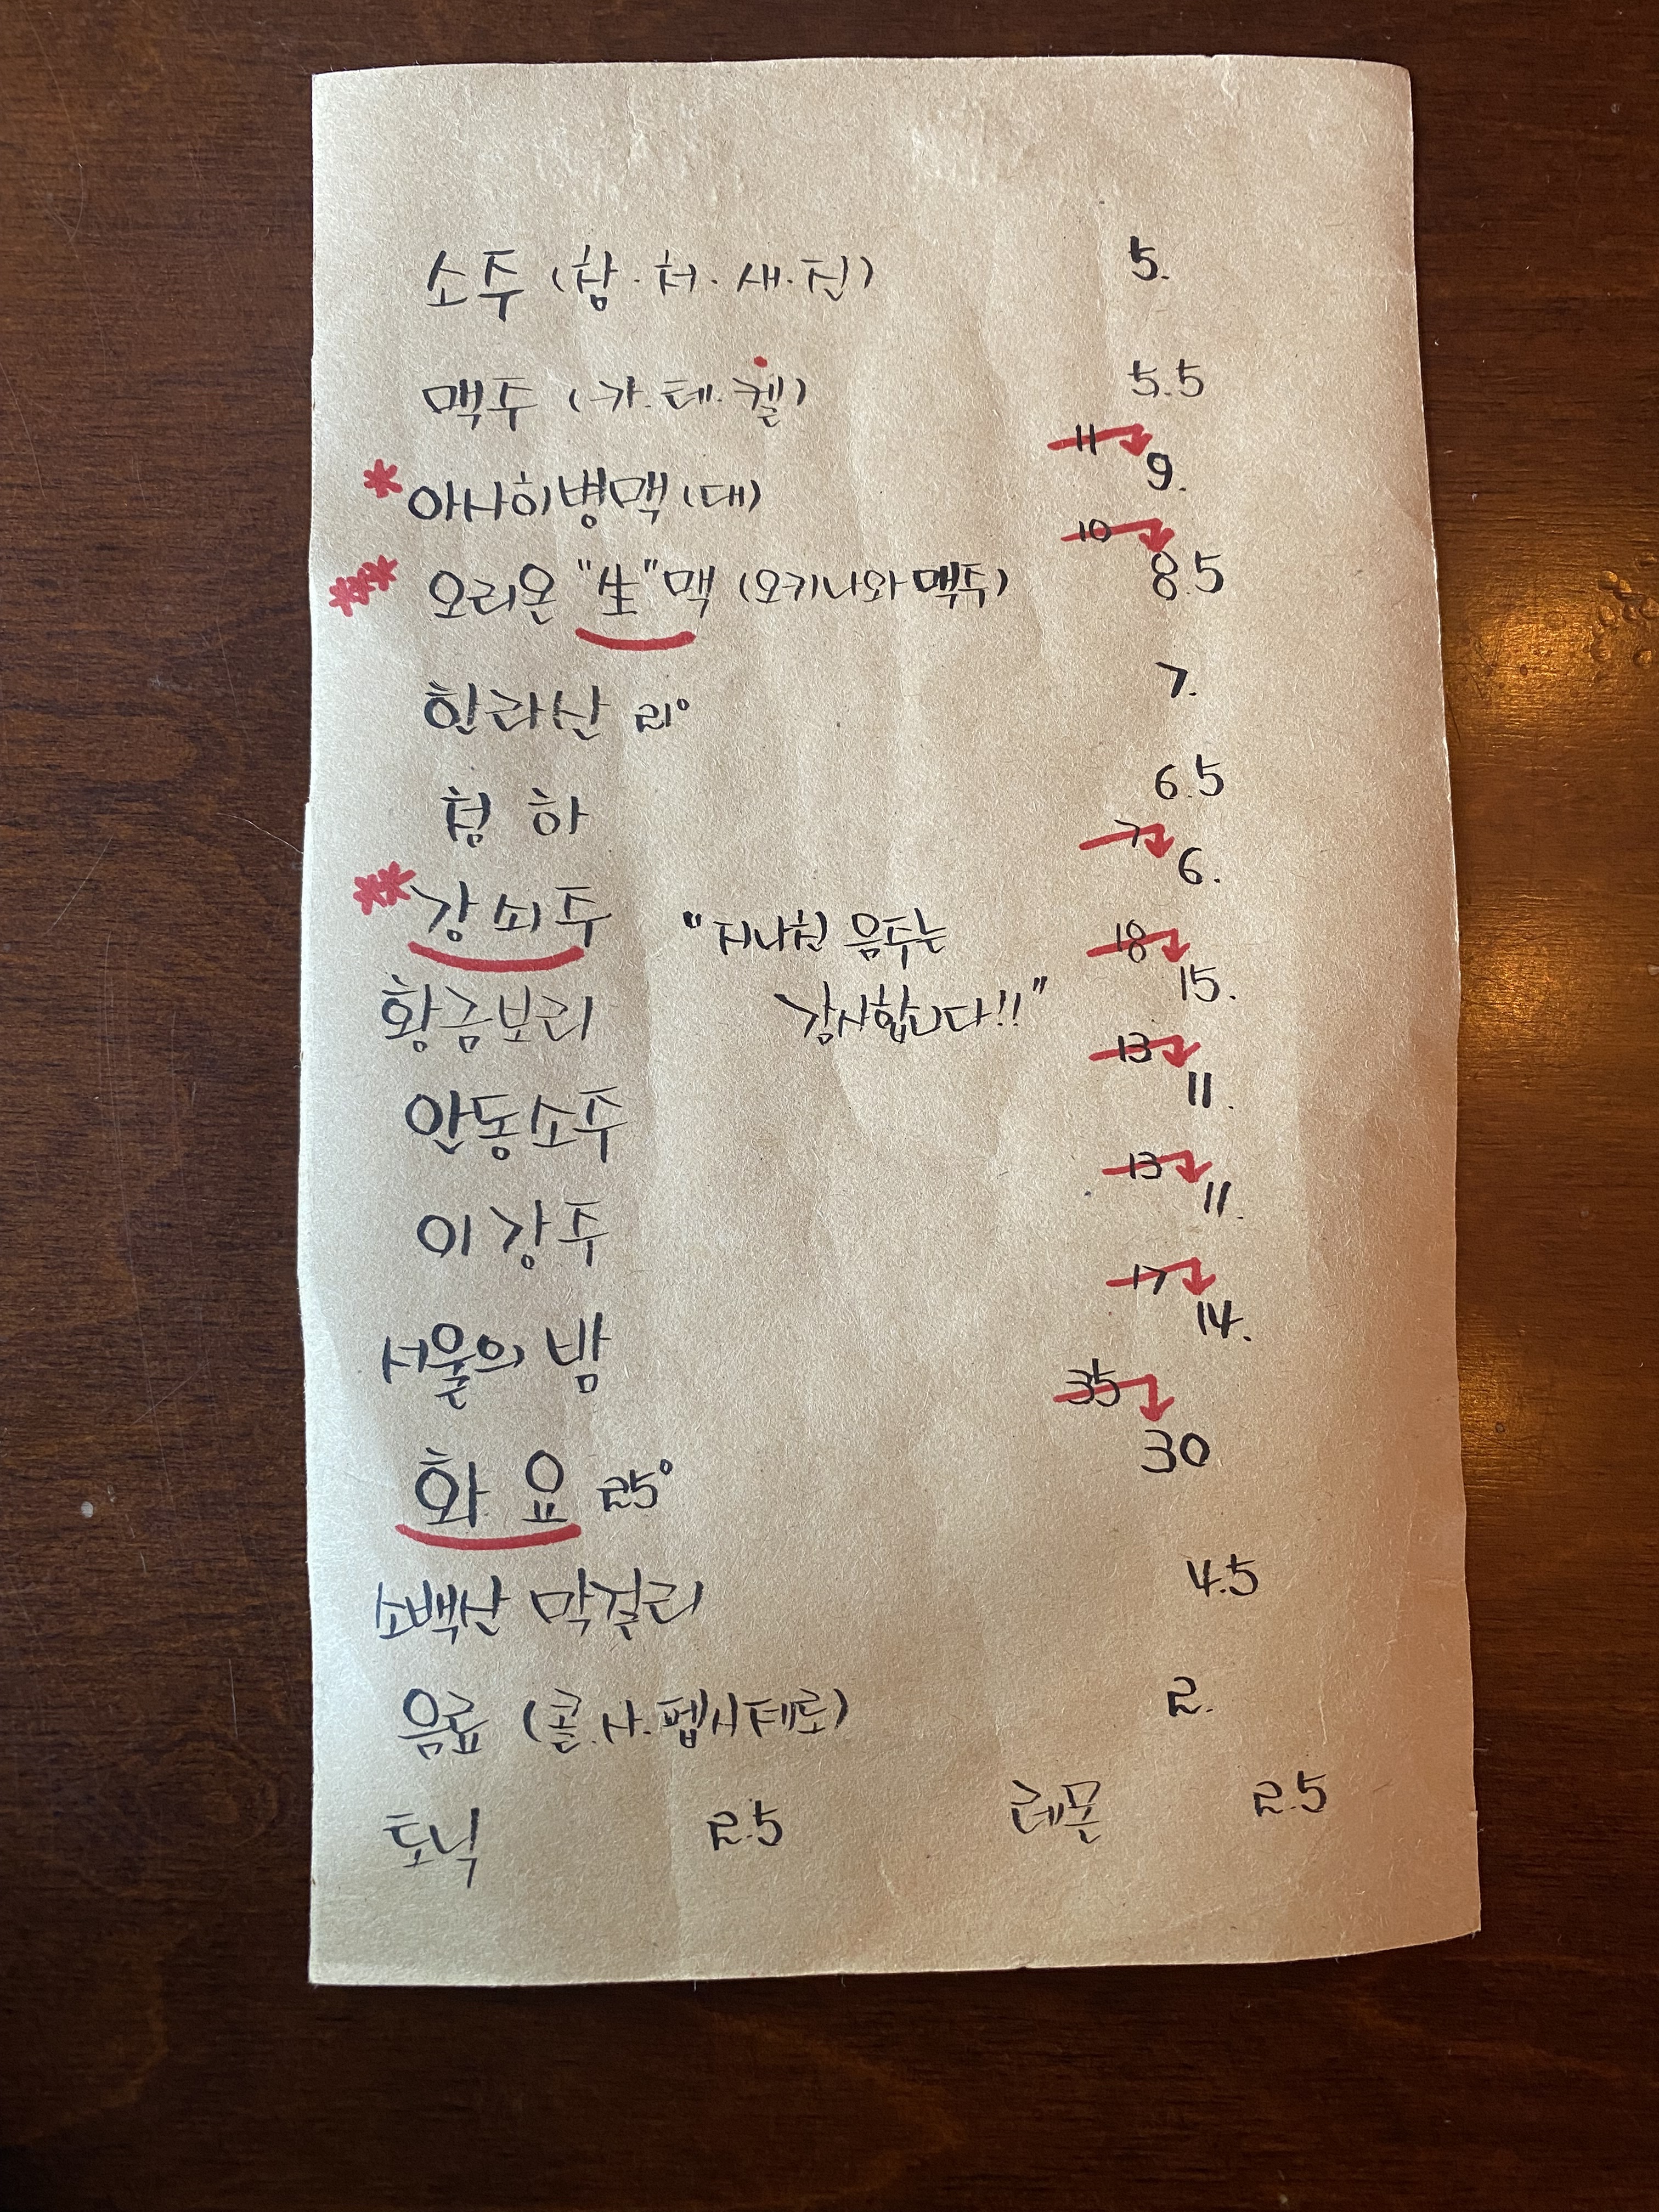 소주 (참.처.새.진) 5.
맥주 (카.테.켈) 5.5
*아사히병맥 (대) 11 9.
***오리온 "生"맥 (오키나와 맥주) 10 8.5
한라산 21° 7.
청하 6.5
**강쇠주 7 6.
"지나친 음주는
감사합니다!!"
황금보리 18 15.
안동소주 13 11.
이강주 13 11.
서울의 밤 17 14.
화요 25° 35 30
소백산 막걸리 4.5
음료 (콜.사.펩시제로) 2.
토닉 2.5 레몬 2.5